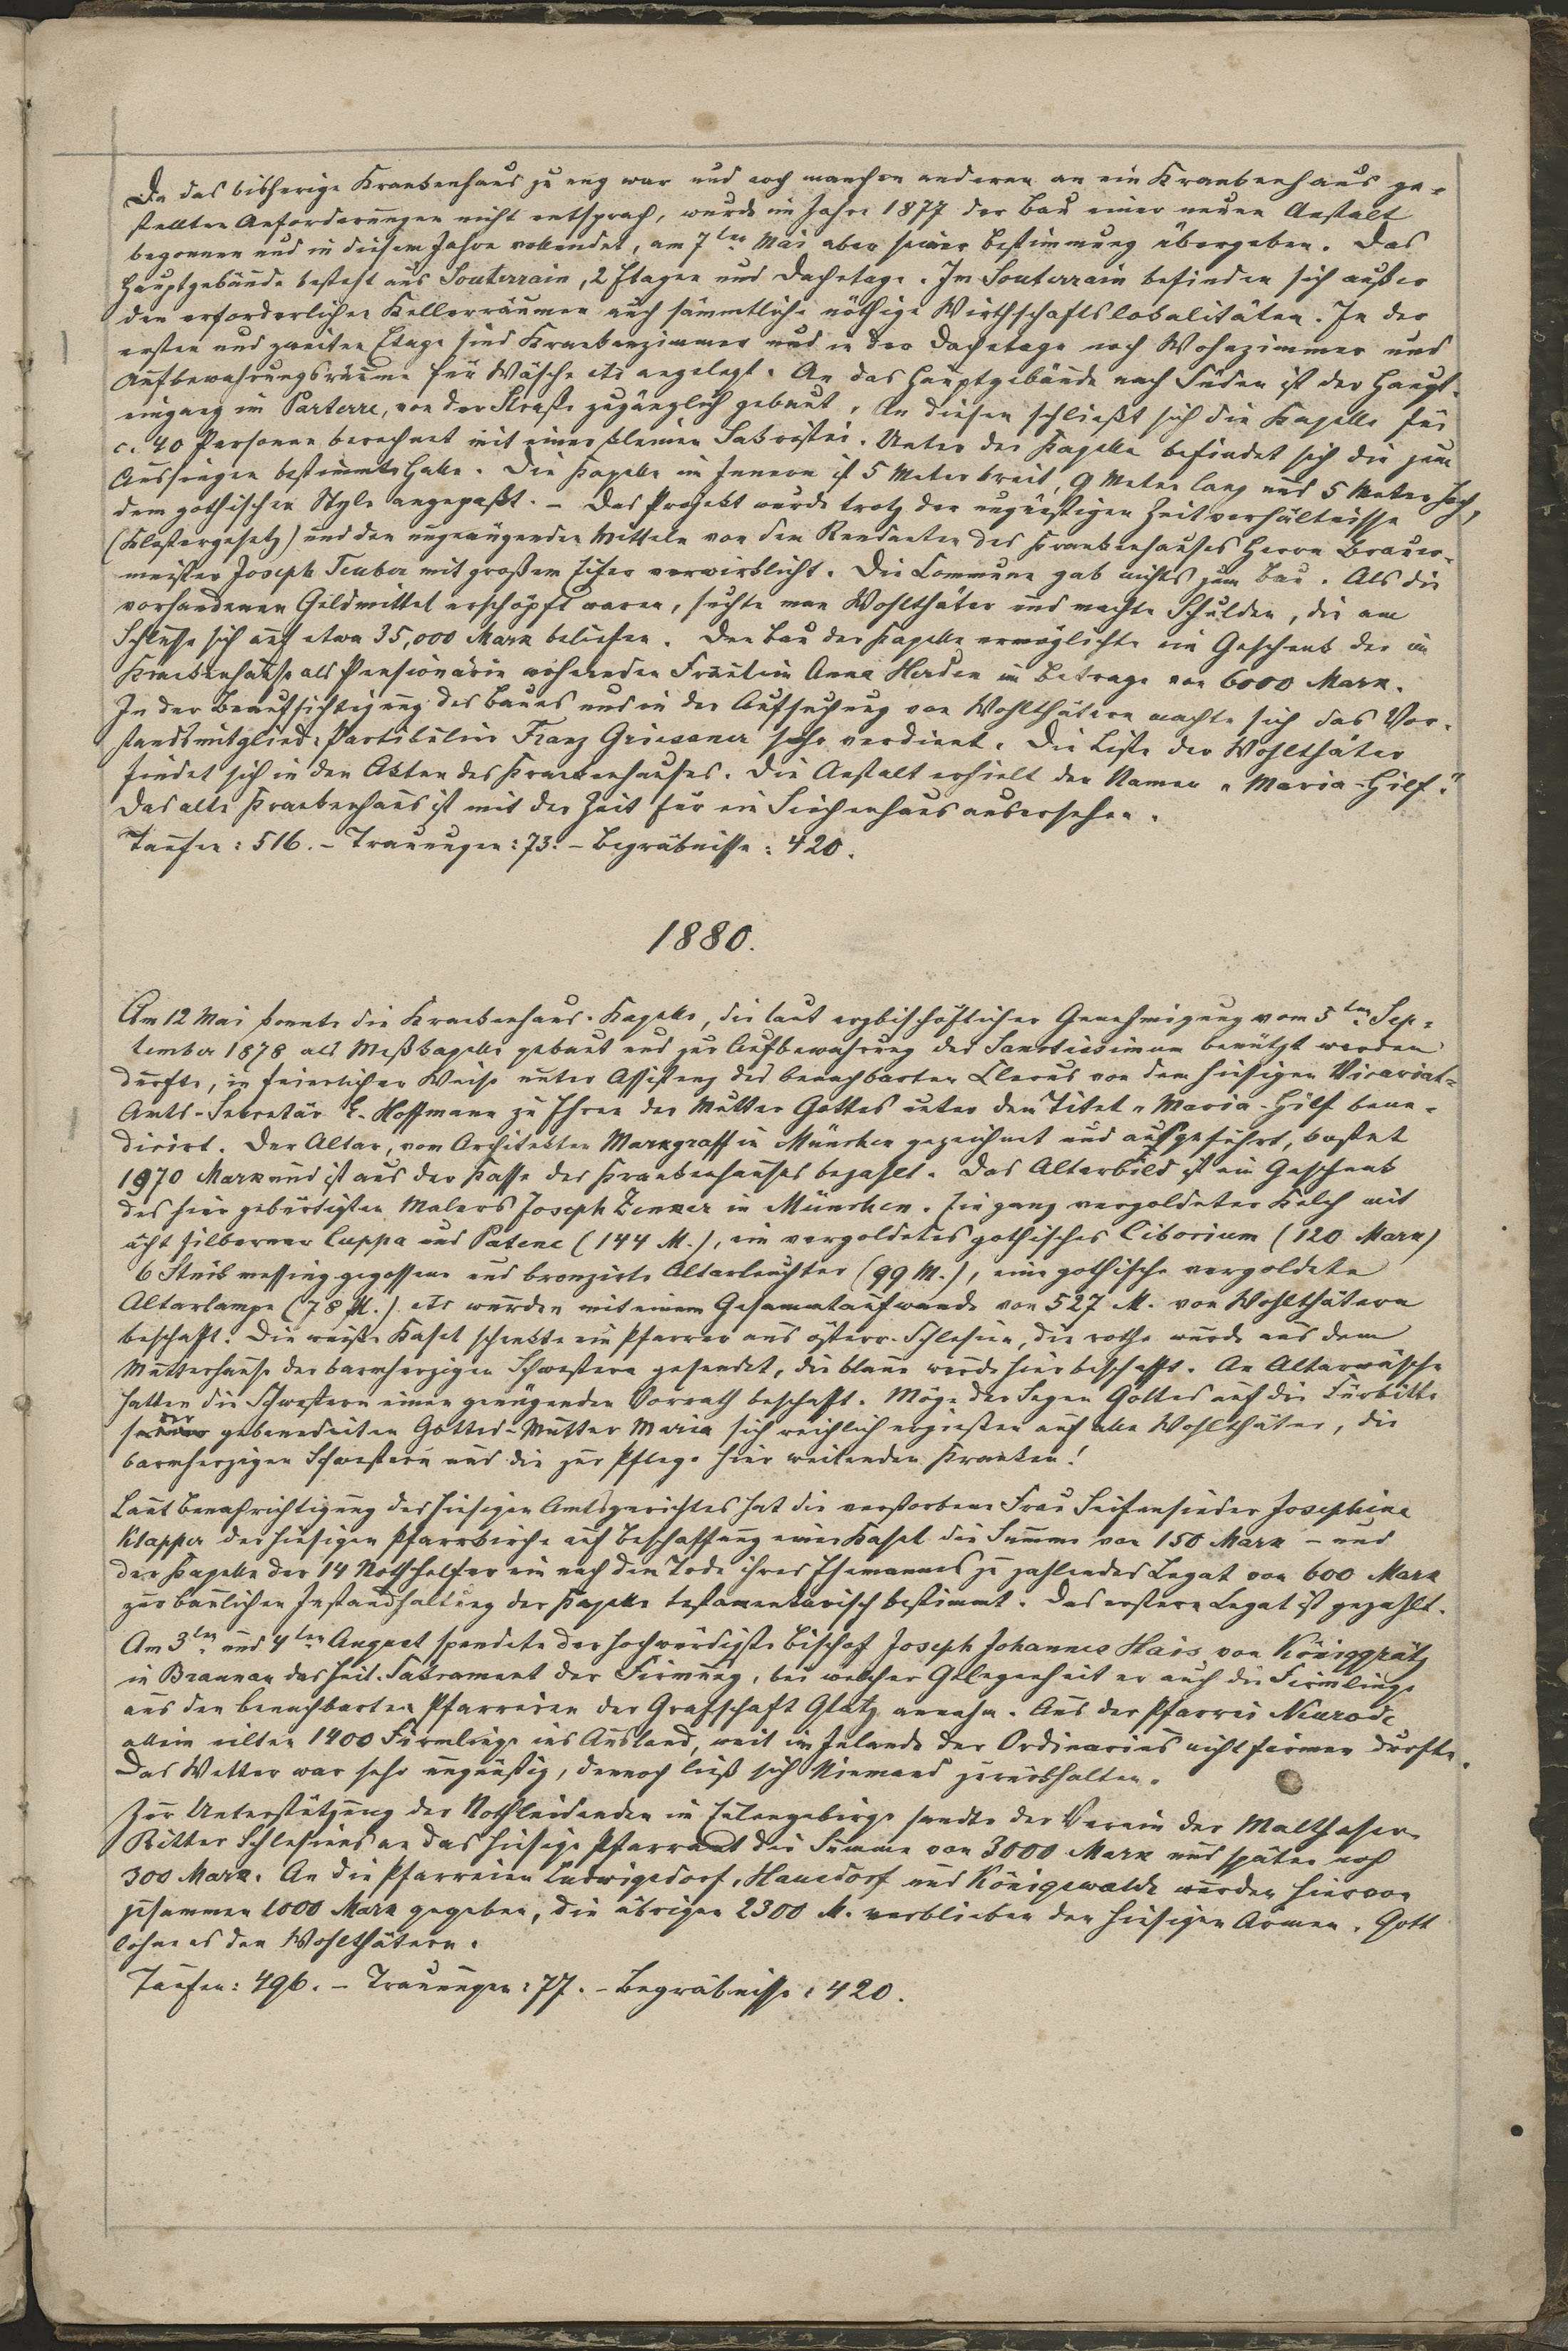 Da das bisherige Krankenhaus zu eng war und noch manchen anderen an ein Krankenhaus ge-
stellten Anforderungen nicht entsprach, wurde im Jahre 1877 der Bau einer neuen Anstalt
begonnen und in diesem Jahre vollendet, am 7ten Mai aber seiner Bestimmung übergeben. Das
Hauptgebäude besteht aus Souterrain, 2 Etagen und Dachetage. Im Souterrain befinden sich außer
den erforderlichen Kellerräumen auch sämmtliche nöthige Wirthschaftslokalitäten. In der
ersten und zweiten Etage sind Krankenzimmer und in der Dachetage noch Wohnzimmer und
Aufbewahrungsräume für Wäsche etc angelegt. An das Hauptgebäude nach Süden ist der Haupt-
eingang im Parterre, von der Straße zugänglich gebaut. An diesen schließt sich die Kapelle für
c. 40 Personen berechnet mit einer kleinen Sakristei. Unter der Kapelle befindet sich die zum
Aussingen bestimmte Halle. Die Kapelle im Innern ist 5 Meter breit, 9 Meter lang und 5 Meter hoch,
dem gothischen Style angepaßt. – Das Projekt wurde trotz der ungünstigen Zeitverhältnisse
(Klostergesetz) und den ungenügenden Mitteln von dem Rendanten des Krankenhauses Herrn Brauer-
meister Joseph Teuber mit großem Eifer verwirklicht. Die Commune gab nichts zum Bau. Als die
vorhandenen Geldmittel erschöpft waren, suchte man Wohlthäter und machte Schulden, die am
Schlusse sich auf etwa 35,000 Mark beliefen. Den Bau der Kapelle ermöglichte ein Geschenk der im
Krankenhause als Pensionärin wohnenden Fräulein Anna Herden im Betrage von 6000 Mark.
In der Beaufsichtigung des Baues und in der Aufsuchung von Wohlthätern machte sich das Vor-
standsmitglied: Partikulier Franz Griesener sehr verdient. Die Liste der Wohlthäter
findet sich in den Akten des Krankenhauses. Die Anstalt erhielt den Namen „Maria-Hilf."
Das alte Krankenhaus ist mit der Zeit für ein Siechenhaus ausersehen.
Taufen: 516. – Trauungen: 73. – Begräbnisse: 420.
1880.
Am 12 Mai konnte die Krankenhaus-Kapelle, die laut erzbischöflicher Genehmigung vom 5ten Sep-
tember 1878 als Meßkapelle gebaut und zur Aufbewahrung des Sanctissimum benützt werden
durfte, in feierlicher Weise unter Assistenz des benachbarten Clerus von dem hiesigen Vicariat-
Amts-Secretär E. Hoffmann zu Ehren der Mutter Gottes unter dem Titel „Maria-Hilf bene-
dicirt. Der Altar, vom Architekten Markgraff in München gezeichnet und ausgeführt, kostet
1970 Mark und ist aus der Kasse des Krankenhauses bezahlt. Das Altarbild ist ein Geschenk
des hier gebürtigten Malers Joseph Zenker in München. Ein ganz vergoldeter Kelch mit
ächt silberner Cuppa und Patene (144 M.), ein vergoldetes gothisches Ciborium (120 Mark)
6 Stück messing gegossene und bronzirte Altarleuchter (99 M.), eine gothische vergoldete
Altarlampe (78 M.) etc wurden mit einem Gesammtaufwande von 527 M. von Wohlthätern
beschafft. Die weiße Kasel schenkte ein Pfarrer aus österr. Schlesien, die rothe wurde aus dem
Mutterhause der barmherzigen Schwestern gesendet, die blaue wurde hier beschafft. An Altarwäsche
hatten die Schwestern einen genügenden Vorrath beschafft. Möge der Segen Gottes auf die Fürbitte
der gebenedeiten Gottes-Mutter Maria sich reichlich ergießen auf alle Wohlthäter, die
barmherzigen Schwestern und die zur Pflege hier weilenden Kranken!
Laut Benachrichtigung des hiesigen Amtsgerichtes hat die verstorbene Frau Seifensieder Josephine
Klapper der hiesigen Pfarrkirche auf Beschaffung einer Kasel die Summe von 150 Mark – und
der Kapelle der 14 Nothhelfer ein nach dem Tode ihres Ehemannes zu zahlendes Legat von 600 Mark
zur baulichen Instandhaltung der Kapelle testamentarisch bestimmt. Das erstere Legat ist gezahlt.
Am 3ten und 4ten August spendete der hochwürdigste Bischof Joseph Johannes Hais von Königgrätz
in Braunau das heil. Sakrament der Firmung, bei welcher Gelegenheit er auch die Firmlinge
aus den benachbarten Pfarreien der Grafschaft Glatz annahm. Aus der Pfarrei Neurode
allein eilten 1400 Firmlinge ins Ausland, weil im Inlande der Ordinarius nicht firmen durfte.
Das Wetter war sehr ungünstig, dennoch ließ sich Niemand zurückhalten.
Zur Unterstützung der Nothleidenden im Eulengebirge sandte der Verein der Malthaser-
Ritter Schlesiens an das hiesige Pfarramt die Summe von 3000 Mark und später noch
300 Mark. An die Pfarreien Ludwigsdorf, Hausdorf und Königswalde wurden hiervon
zusammen 1000 Mark gegeben, die übrigen 2300 M. verblieben den hiesigen Armen. Gott
lohne es den Wohlthätern.
Taufen: 496. – Trauungen: 77. – Begräbnisse: 420.